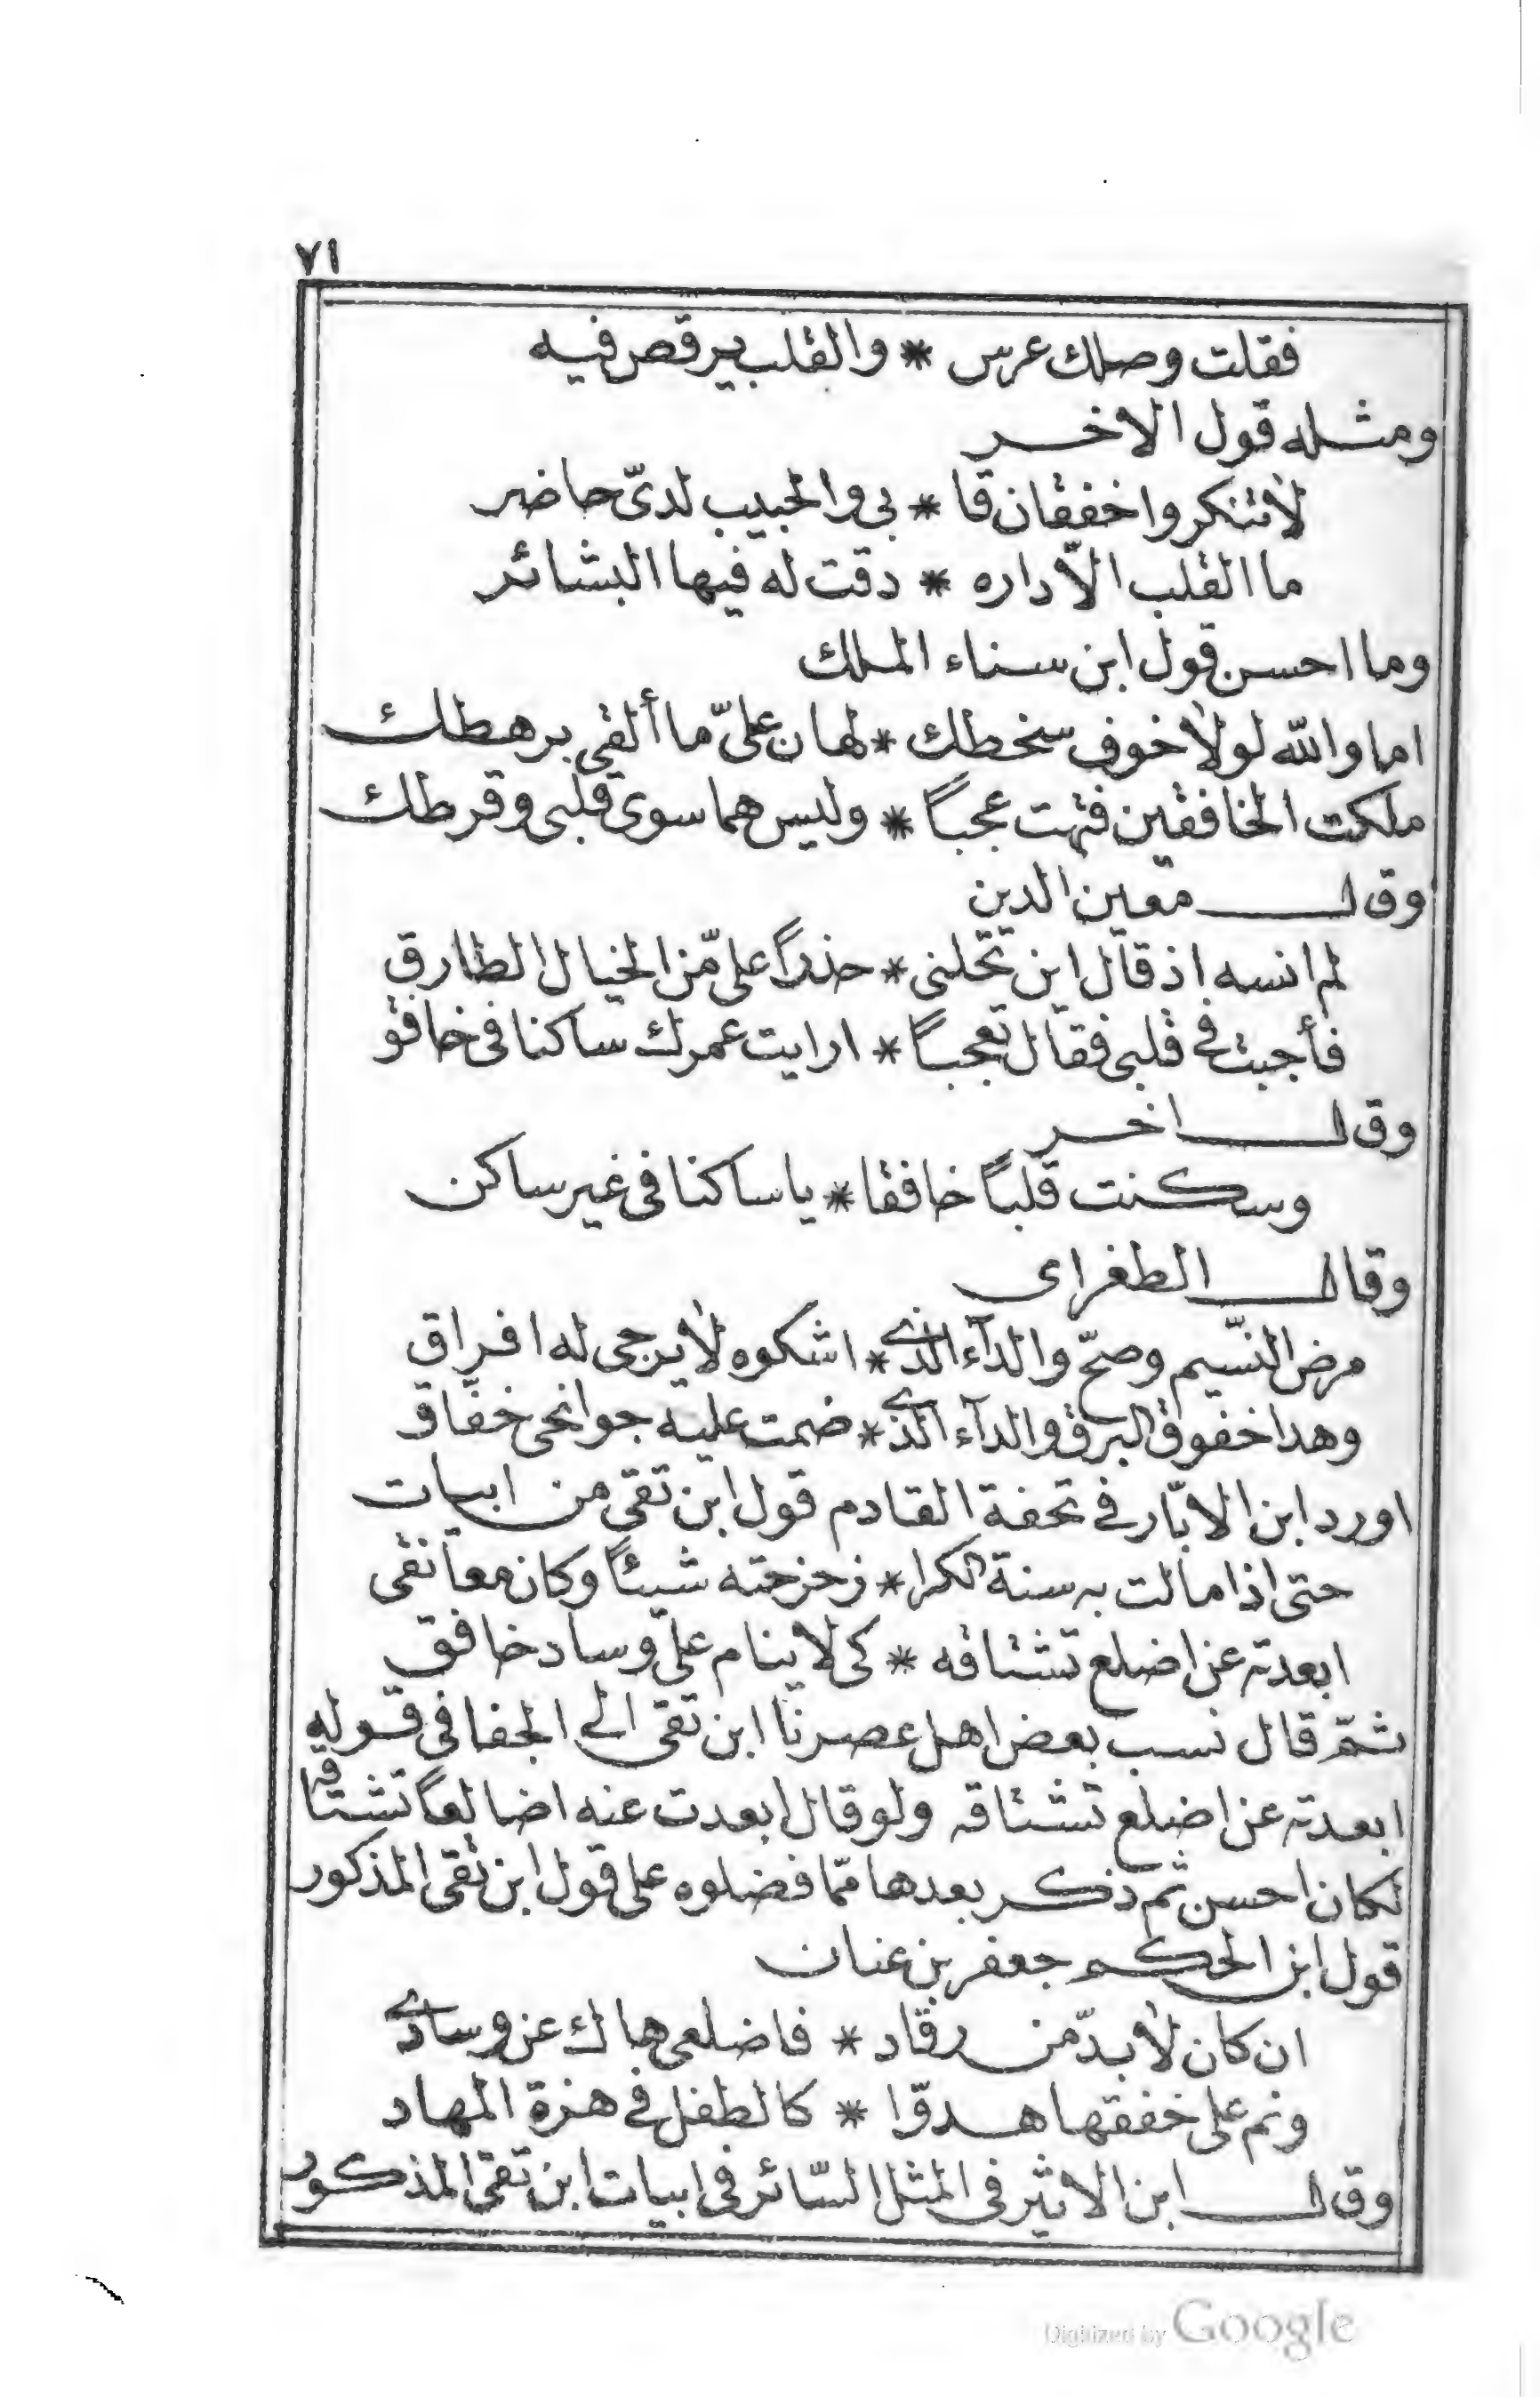 ٧١
فقلت وصلك عرس * والقلب يرقص فيه
ومثله قول الاخر
لاتنكروا خفقان قا * بى والحبيب لدىّ حاضر
ما القلب الّا داره * دقت له فيها البشائر
وما احسن قول ابن سناء الملك
اما والله لولا خوف سخطك * لهان علىّ ما ألقى برهطك
ملكت الخافقين فتهت عجباً * وليس هما سوى قلبى وقرطك
وقال معين الدين
لم انسه اذ قال اين تحلنى * حذراً علىّ من الخيال الطارق
فأجبت فى قلبى فقال تعجباً * ارايت عمرك ساكنا فى خافق
وقال اخر
وسكنت قلباً خافقا * يا ساكنا فى غير ساكن
وقال الطغراى
مرض النسّيم وصحّ والدآء الذى * اشكوه لا يرجى له افراق
وهدا خفوق البرق والدآء الذى * ضمت عليه جوانحى خفّاق
اورد ابن الابّار فى تحفة القادم قول ابن تقى من ابيات
حتى اذا مالت به سنة الكرا * زحزحته شيئاً وكان معانقى
ابعدته عن اضلع تشتاقه * كى لا ينام على وساد خافق
ثمّ قال نسب بعض اهل عصرنا ابن تقى الى الجفا فى قوله
ابعدته عن اضلع تشتاقه ولو قال ابعدت عنه اضالعاً تشتاقه
لكان احسن ثم ذكر بعدها ممّا فضلوه على قول ابن تقى المذكور
قول ابن الحكم جعفر بن عنان
ان كان لا بدّ من رقاد * فاضلعى هاك عن وسادى
ونم على خفقها هدوّا * كالطفل فى هزة المهاد
وقال ابن الاثير فى المثل السّائر فى ابيات ابن تقى المذكور
Digitized by Google